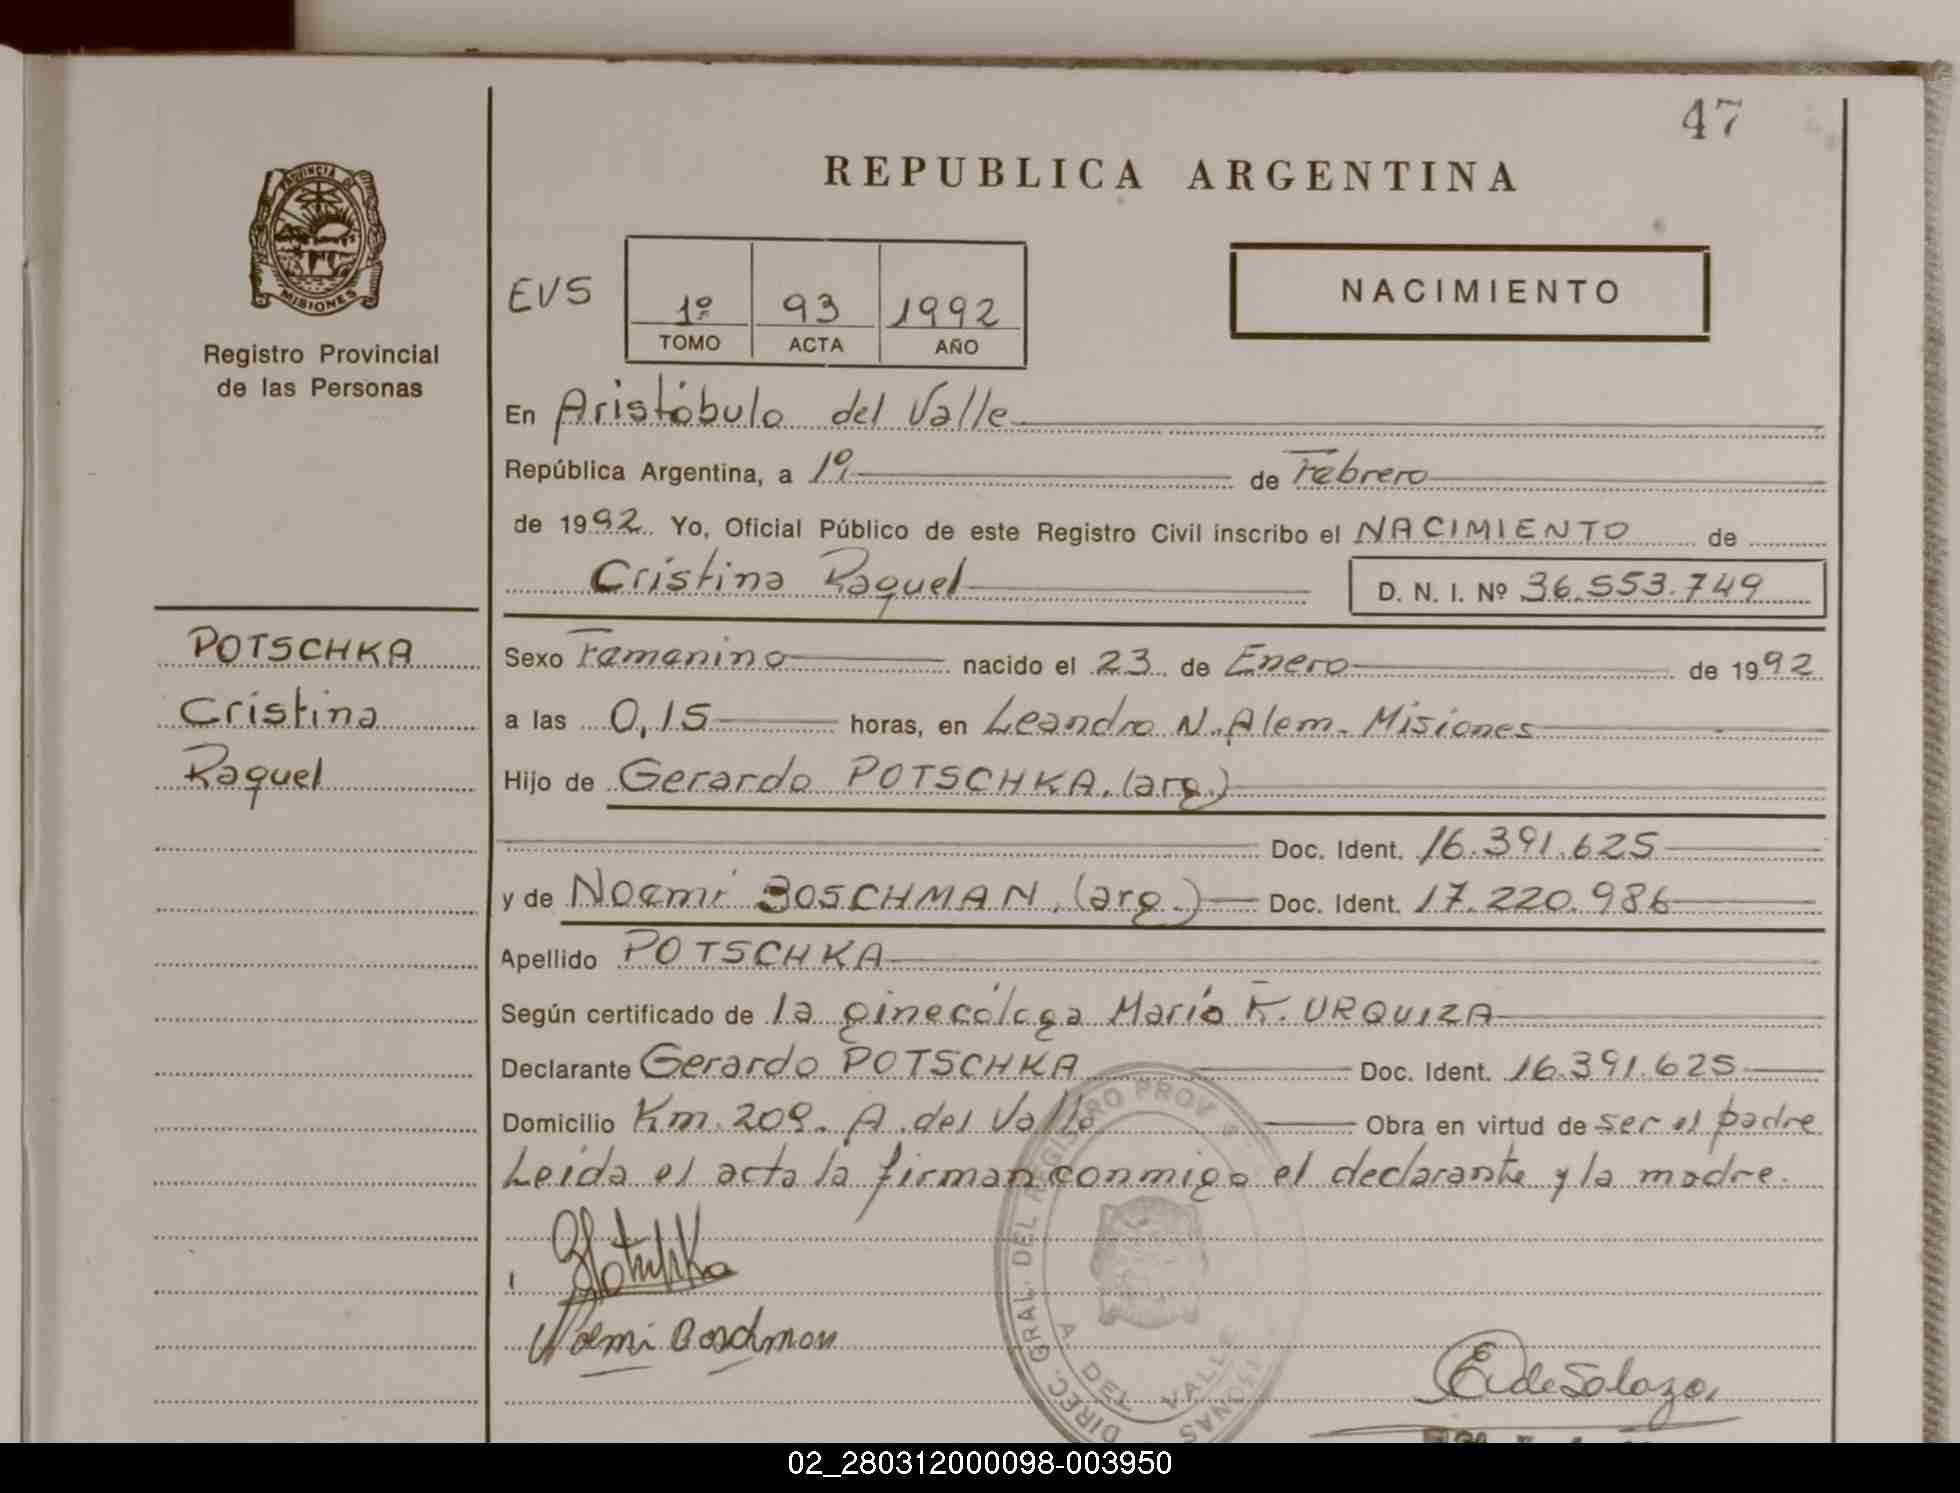 47
REPUBLICA ARGENTINA
PROVINCIA DE
MISIONES
Registro Provincial
de las Personas
EVS
1º 93 1992
TOMO ACTA AÑO
NACIMIENTO
En Aristóbulo del Valle
República Argentina, a 1º de Febrero
de 1992. Yo, Oficial Público de este Registro Civil inscribo el NACIMIENTO de
Cristina Raquel D. N. I. Nº 36.553.749
POTSCHKA
Cristina
Raquel
Sexo Femenino nacido el 23 de Enero de 1992
a las 0,15 horas, en Leandro N. Alem. Misiones
Hijo de Gerardo POTSCHKA. (arg.)
Doc. Ident. 16.391.625
y de Noemí BOSCHMAN. (arg.) Doc. Ident. 17.220.986
Apellido POTSCHKA
Según certificado de la ginecóloga María K. URQUIZA
Declarante Gerardo POTSCHKA Doc. Ident. 16.391.625
Domicilio Km. 209. A. del Valle Obra en virtud de ser el padre
Leída el acta la firman conmigo el declarante y la madre.
DIREC. GRAL. DEL REGISTRO PROV
A. DEL VALLE
Noemi Boschman
E de Salazar
02_280312000098-003950